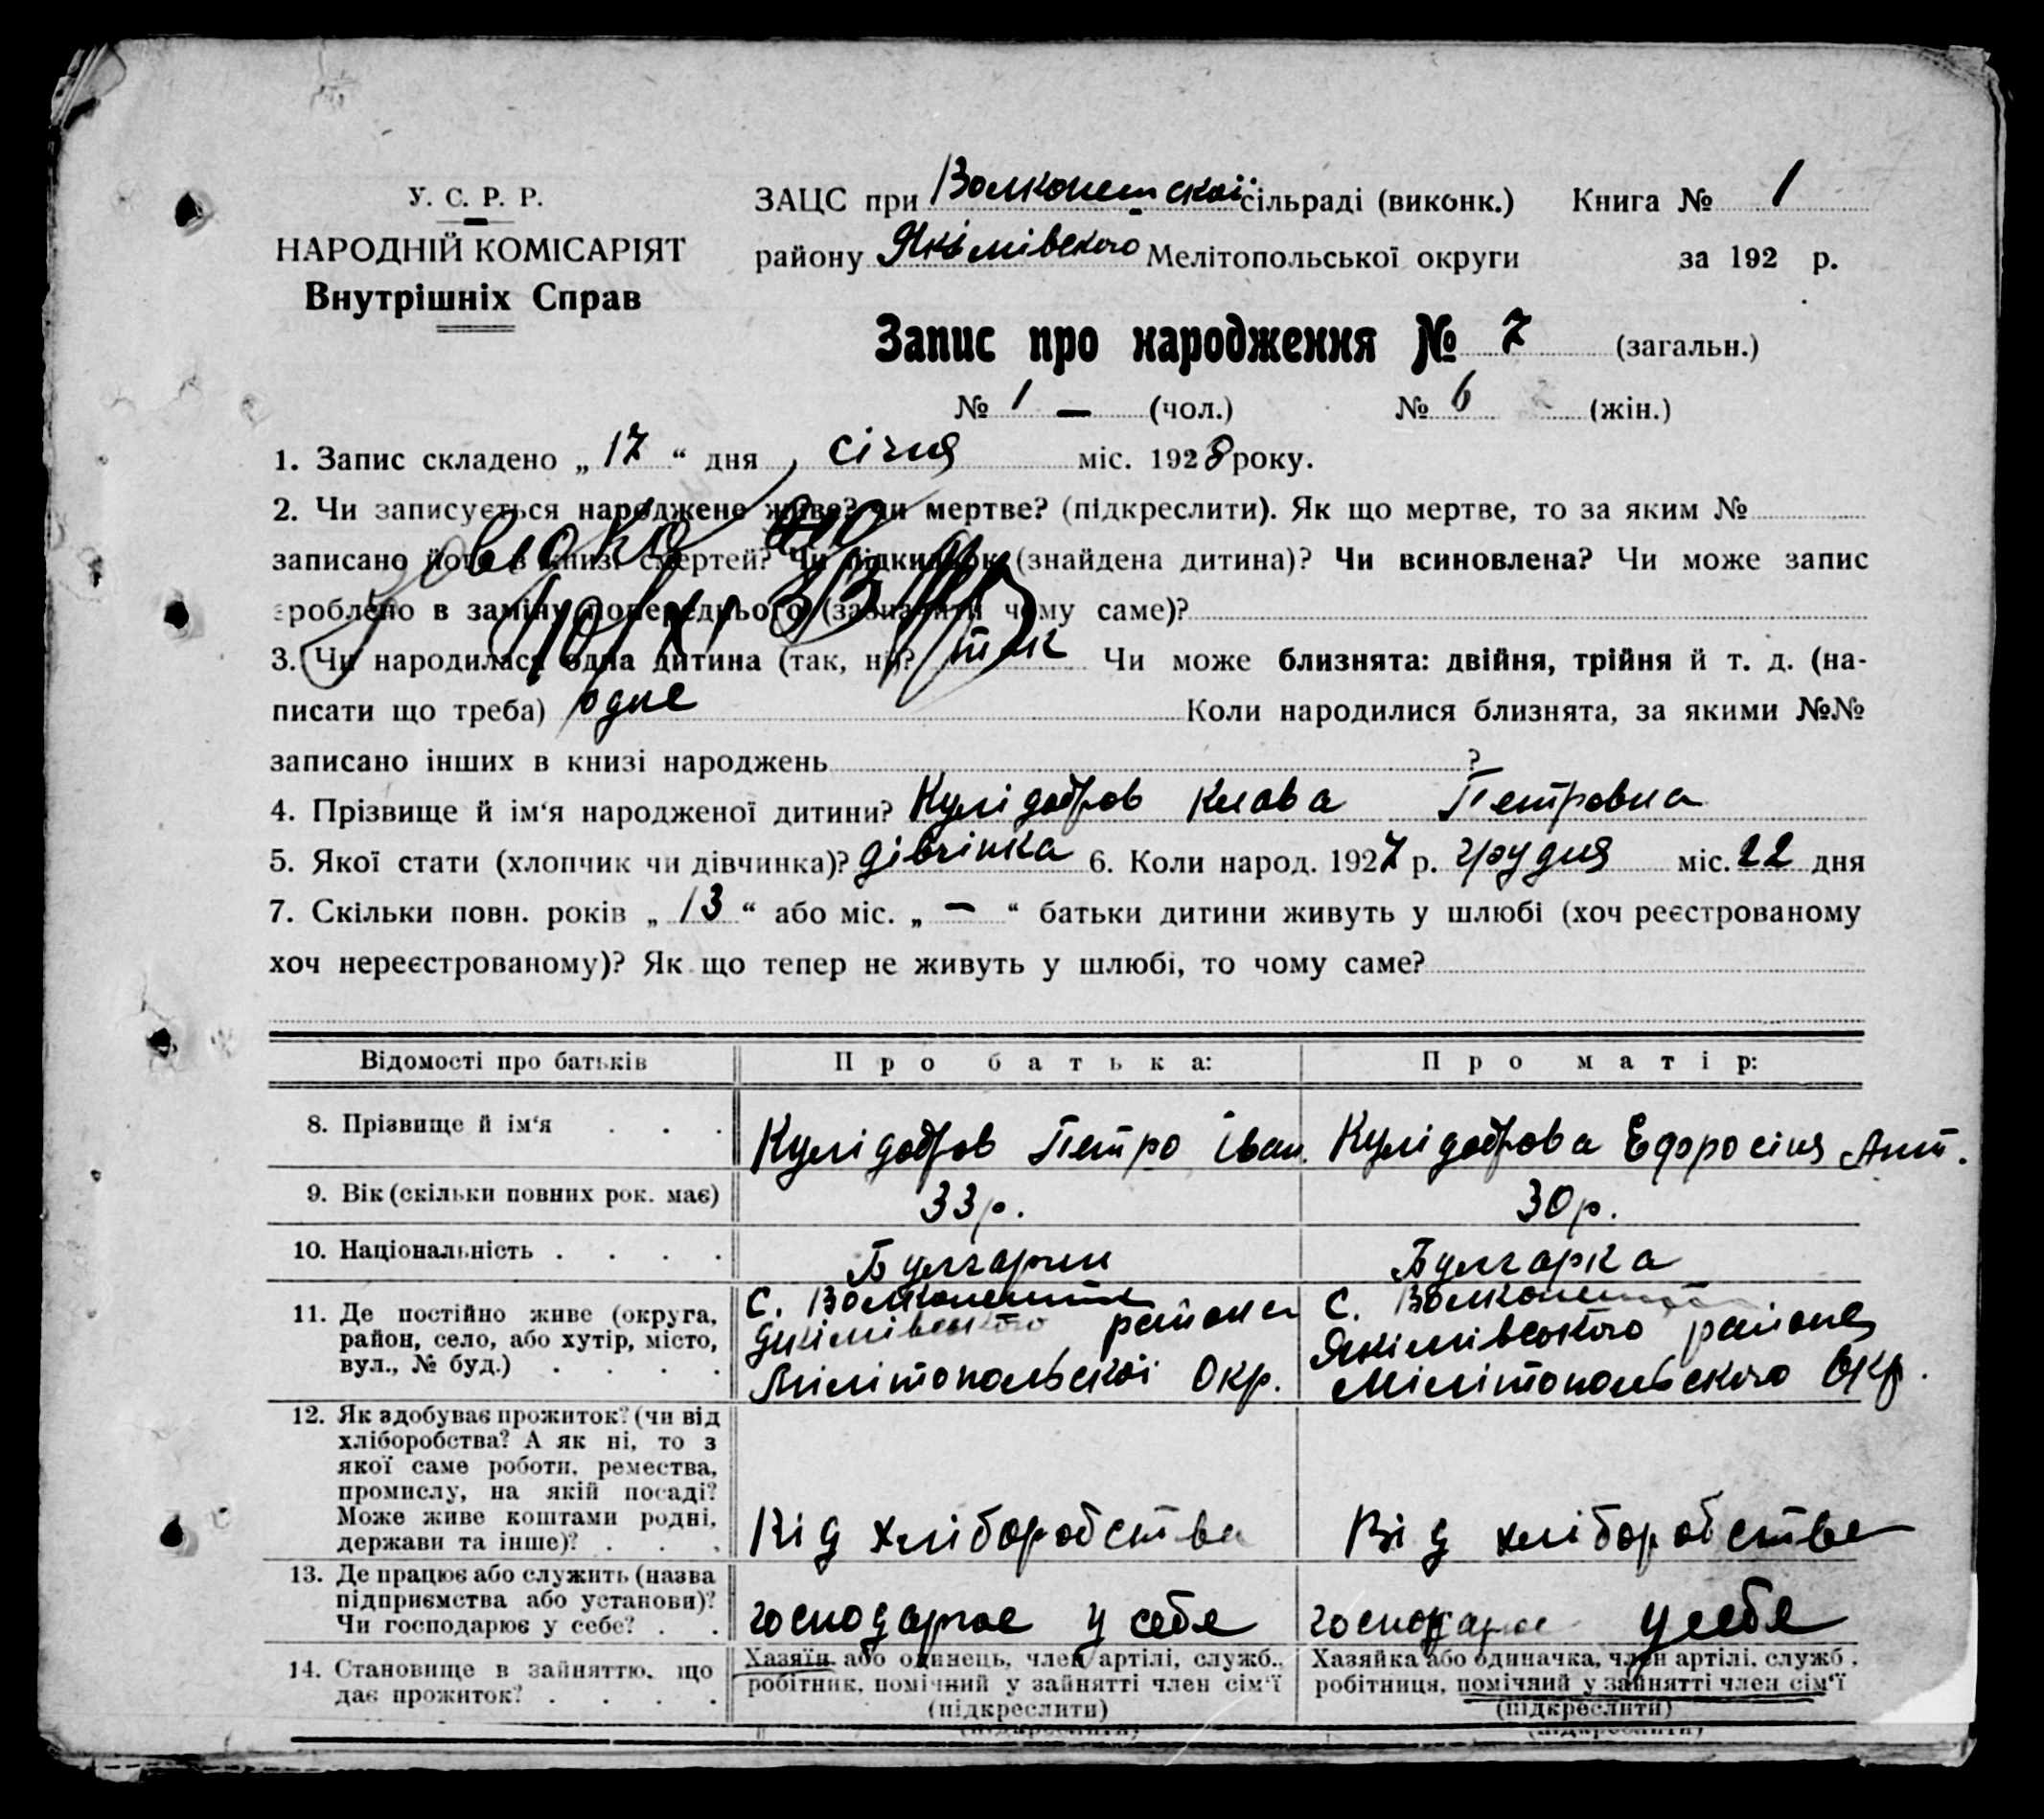 У. С. Р. Р.
НАРОДНІЙ КОМІСАРІЯТ
Внутрішніх Справ
ЗАЦС при Волконетской сільраді (виконк.) Книга № 1
району Якімівского Мелітопольської округи за 192 р.
Запис про народження № 7 (загальн.)
№ 1 — (чол.) № 6 (жін.)
1. Запис складено „ 17 “ дня січня міс. 1928 року.
2. Чи записується народжене живе? чи мертве? (підкреслити). Як що мертве, то за яким №
записано його в книзі смертей? Чи підкидьок (знайдена дитина)? Чи всиновлена? Чи може запис
зроблено в заміну попереднього (зазначити чому саме)?
3. Чи народилася одна дитина (так, ні)? так Чи може близнята: двійня, трійня й т. д. (на-
писати що треба) одне Коли народилися близнята, за якими №№
записано інших в книзі народжень ?
4. Прізвище й ім‘я народженої дитини? Кулідобров Клава Петровна
5. Якої стати (хлопчик чи дівчинка)? дівчінка 6. Коли народ. 1927 р. грудня міс. 22 дня
7. Скільки повн. років „ 13 “ або міс. „ — “ батьки дитини живуть у шлюбі (хоч реєстрованому
хоч нереєстрованому)? Як що тепер не живуть у шлюбі, то чому саме?
Відомості про батьків Про батька: Про матір:
8. Прізвище й ім‘я . . . Кулідобров Петро Іван. Кулідоброва Ефросінія Ант.
9. Вік (скільки повних рок. має) 33 р. 30 р.
10. Національність . . . . Булгарин Булгарка
11. Де постійно живе (округа,
район, село, або хутір, місто,
вул., № буд.) . . . .
с. Волконешти
Якімівського района
Мілітопольскої Окр.
с. Волконешти
Якімівського района
Мілітопольского Окр.
12. Як здобуває прожиток? (чи від
хліборобства? А як ні, то з
якої саме роботи, ремества,
промислу, на якій посаді?
Може живе коштами родні,
держави та інше)? . . .
Від хліборобства Від хліборобства
13. Де працює або служить (назва
підприємства або установи)?
Чи господарює у себе? . .
господарює у себе господарює у себе
14. Становище в зайняттю, що
дає прожиток? . . . .
Хазяїн або одинець, член артілі, служб.,
робітник, помічний у зайнятті член сім‘ї
(підкреслити)
Хазяйка або одиначка, член артілі, служб.,
робітниця, помічний у зайнятті член сім‘ї
(підкреслити)